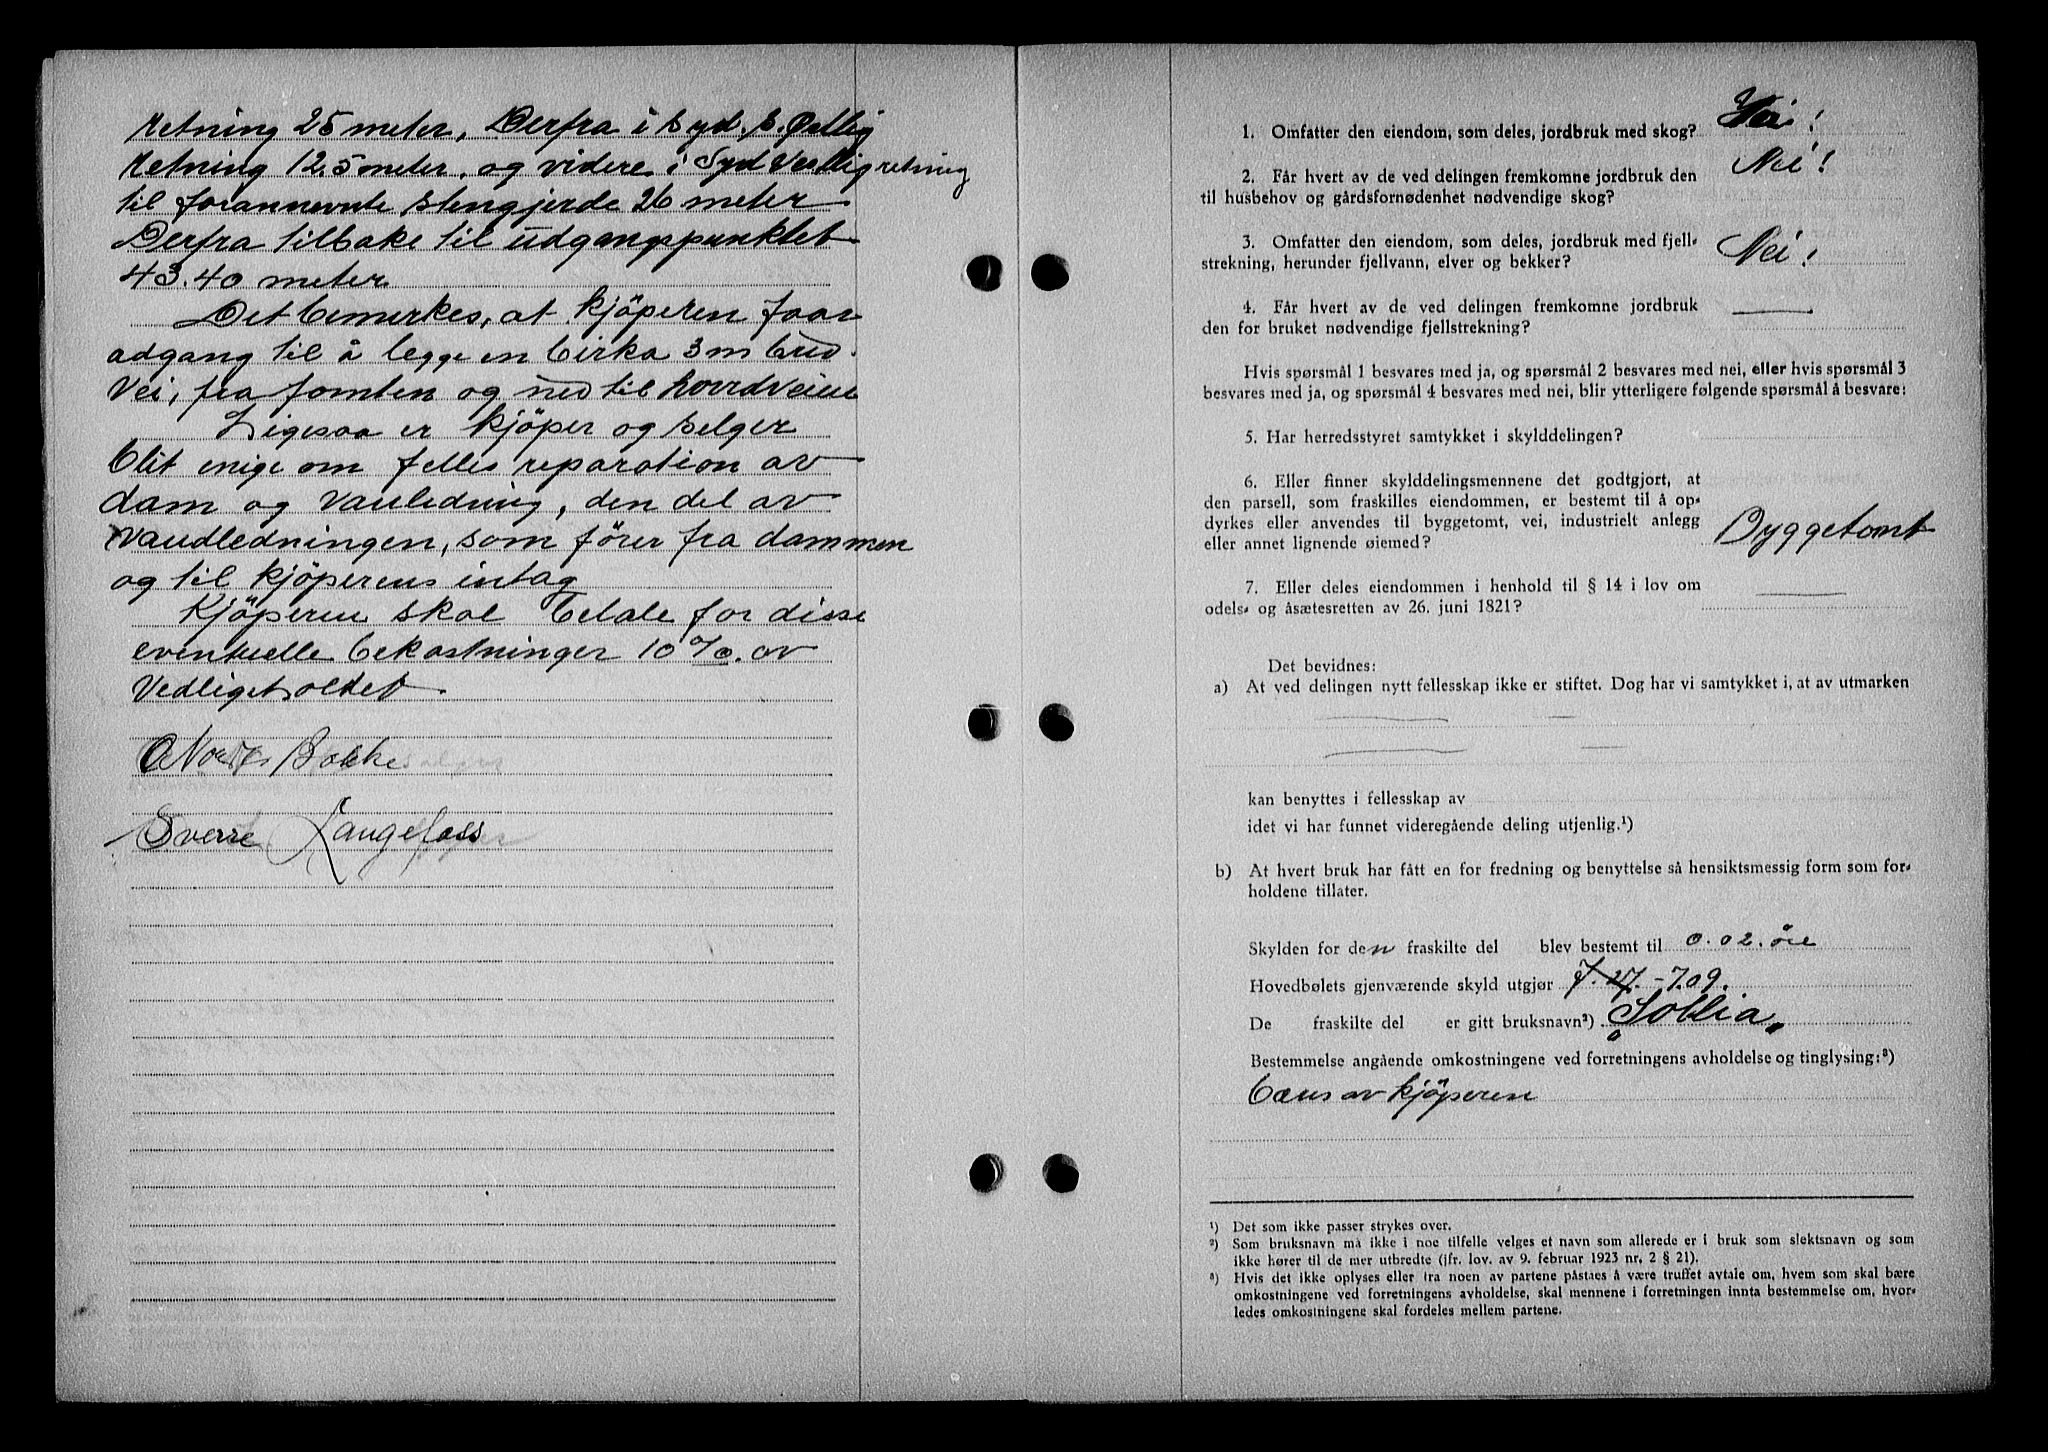 retning 25 meter, Derfra i Syd. S. Østlig
retning 12,5 meter, og videre i Syd Vestlig retning
til forannevnte stengjerde 26 meter
Derfra tilbake til udgangspunktet
43.40 meter
Det bemerkes, at kjöperen faar
adgang til å legge en cirka 3 m bred
Vei, fra tomten og ned til hovedveien
Ligesaa er kjöper og selger
blit enige om felles reparation av
dam og vanledning, den del av
vandledningen, som förer fra dammen
og til kjöperens intag
Kjöperen skal betale for disse
eventuelle bekostninger 10 %. av
Vedligeholdet.
Bakke
Sverre Langefoss
1. Omfatter den eiendom, som deles, jordbruk med skog? Nei!
2. Får hvert av de ved delingen fremkomne jordbruk den
til husbehov og gårdsfornødenhet nødvendige skog? Nei!
3. Omfatter den eiendom, som deles, jordbruk med fjell-
strekning, herunder fjellvann, elver og bekker? Nei!
4. Får hvert av de ved delingen fremkomne jordbruk
den for bruket nødvendige fjellstrekning? —
Hvis spørsmål 1 besvares med ja, og spørsmål 2 besvares med nei, eller hvis spørsmål 3
besvares med ja, og spørsmål 4 besvares med nei, blir ytterligere følgende spørsmål å besvare:
5. Har herredsstyret samtykket i skylddelingen?
6. Eller finner skylddelingsmennene det godtgjort, at
den parsell, som fraskilles eiendommen, er bestemt til å op-
dyrkes eller anvendes til byggetomt, vei, industrielt anlegg
eller annet lignende øiemed? Byggetomt
7. Eller deles eiendommen i henhold til § 14 i lov om
odels- og åsætesretten av 26. juni 1821? —
Det bevidnes:
a) At ved delingen nytt fellesskap ikke er stiftet. Dog har vi samtykket i, at av utmarken
kan benyttes i fellesskap av
idet vi har funnet videregående deling utjenlig.¹)
b) At hvert bruk har fått en for fredning og benyttelse så hensiktsmessig form som for-
holdene tillater.
Skylden for den fraskilte del blev bestemt til 0.02. öre
Hovedbølets gjenværende skyld utgjør 7.27. - 7.09.
De fraskilte del er gitt bruksnavn²) „Sollia„
Bestemmelse angående omkostningene ved forretningens avholdelse og tinglysing:³)
bæres av kjöperen
¹) Det som ikke passer strykes over.
²) Som bruksnavn må ikke i noe tilfelle velges et navn som allerede er i bruk som slektsnavn og som
ikke hører til de mer utbredte (jfr. lov. av 9. februar 1923 nr. 2 § 21).
³) Hvis det ikke oplyses eller fra noen av partene påstaes å være truffet avtale om, hvem som skal bære
omkostningene ved forretningens avholdelse, skal mennene i forretningen innta bestemmelse om, hvor-
ledes omkostningene skal fordeles mellem partene.